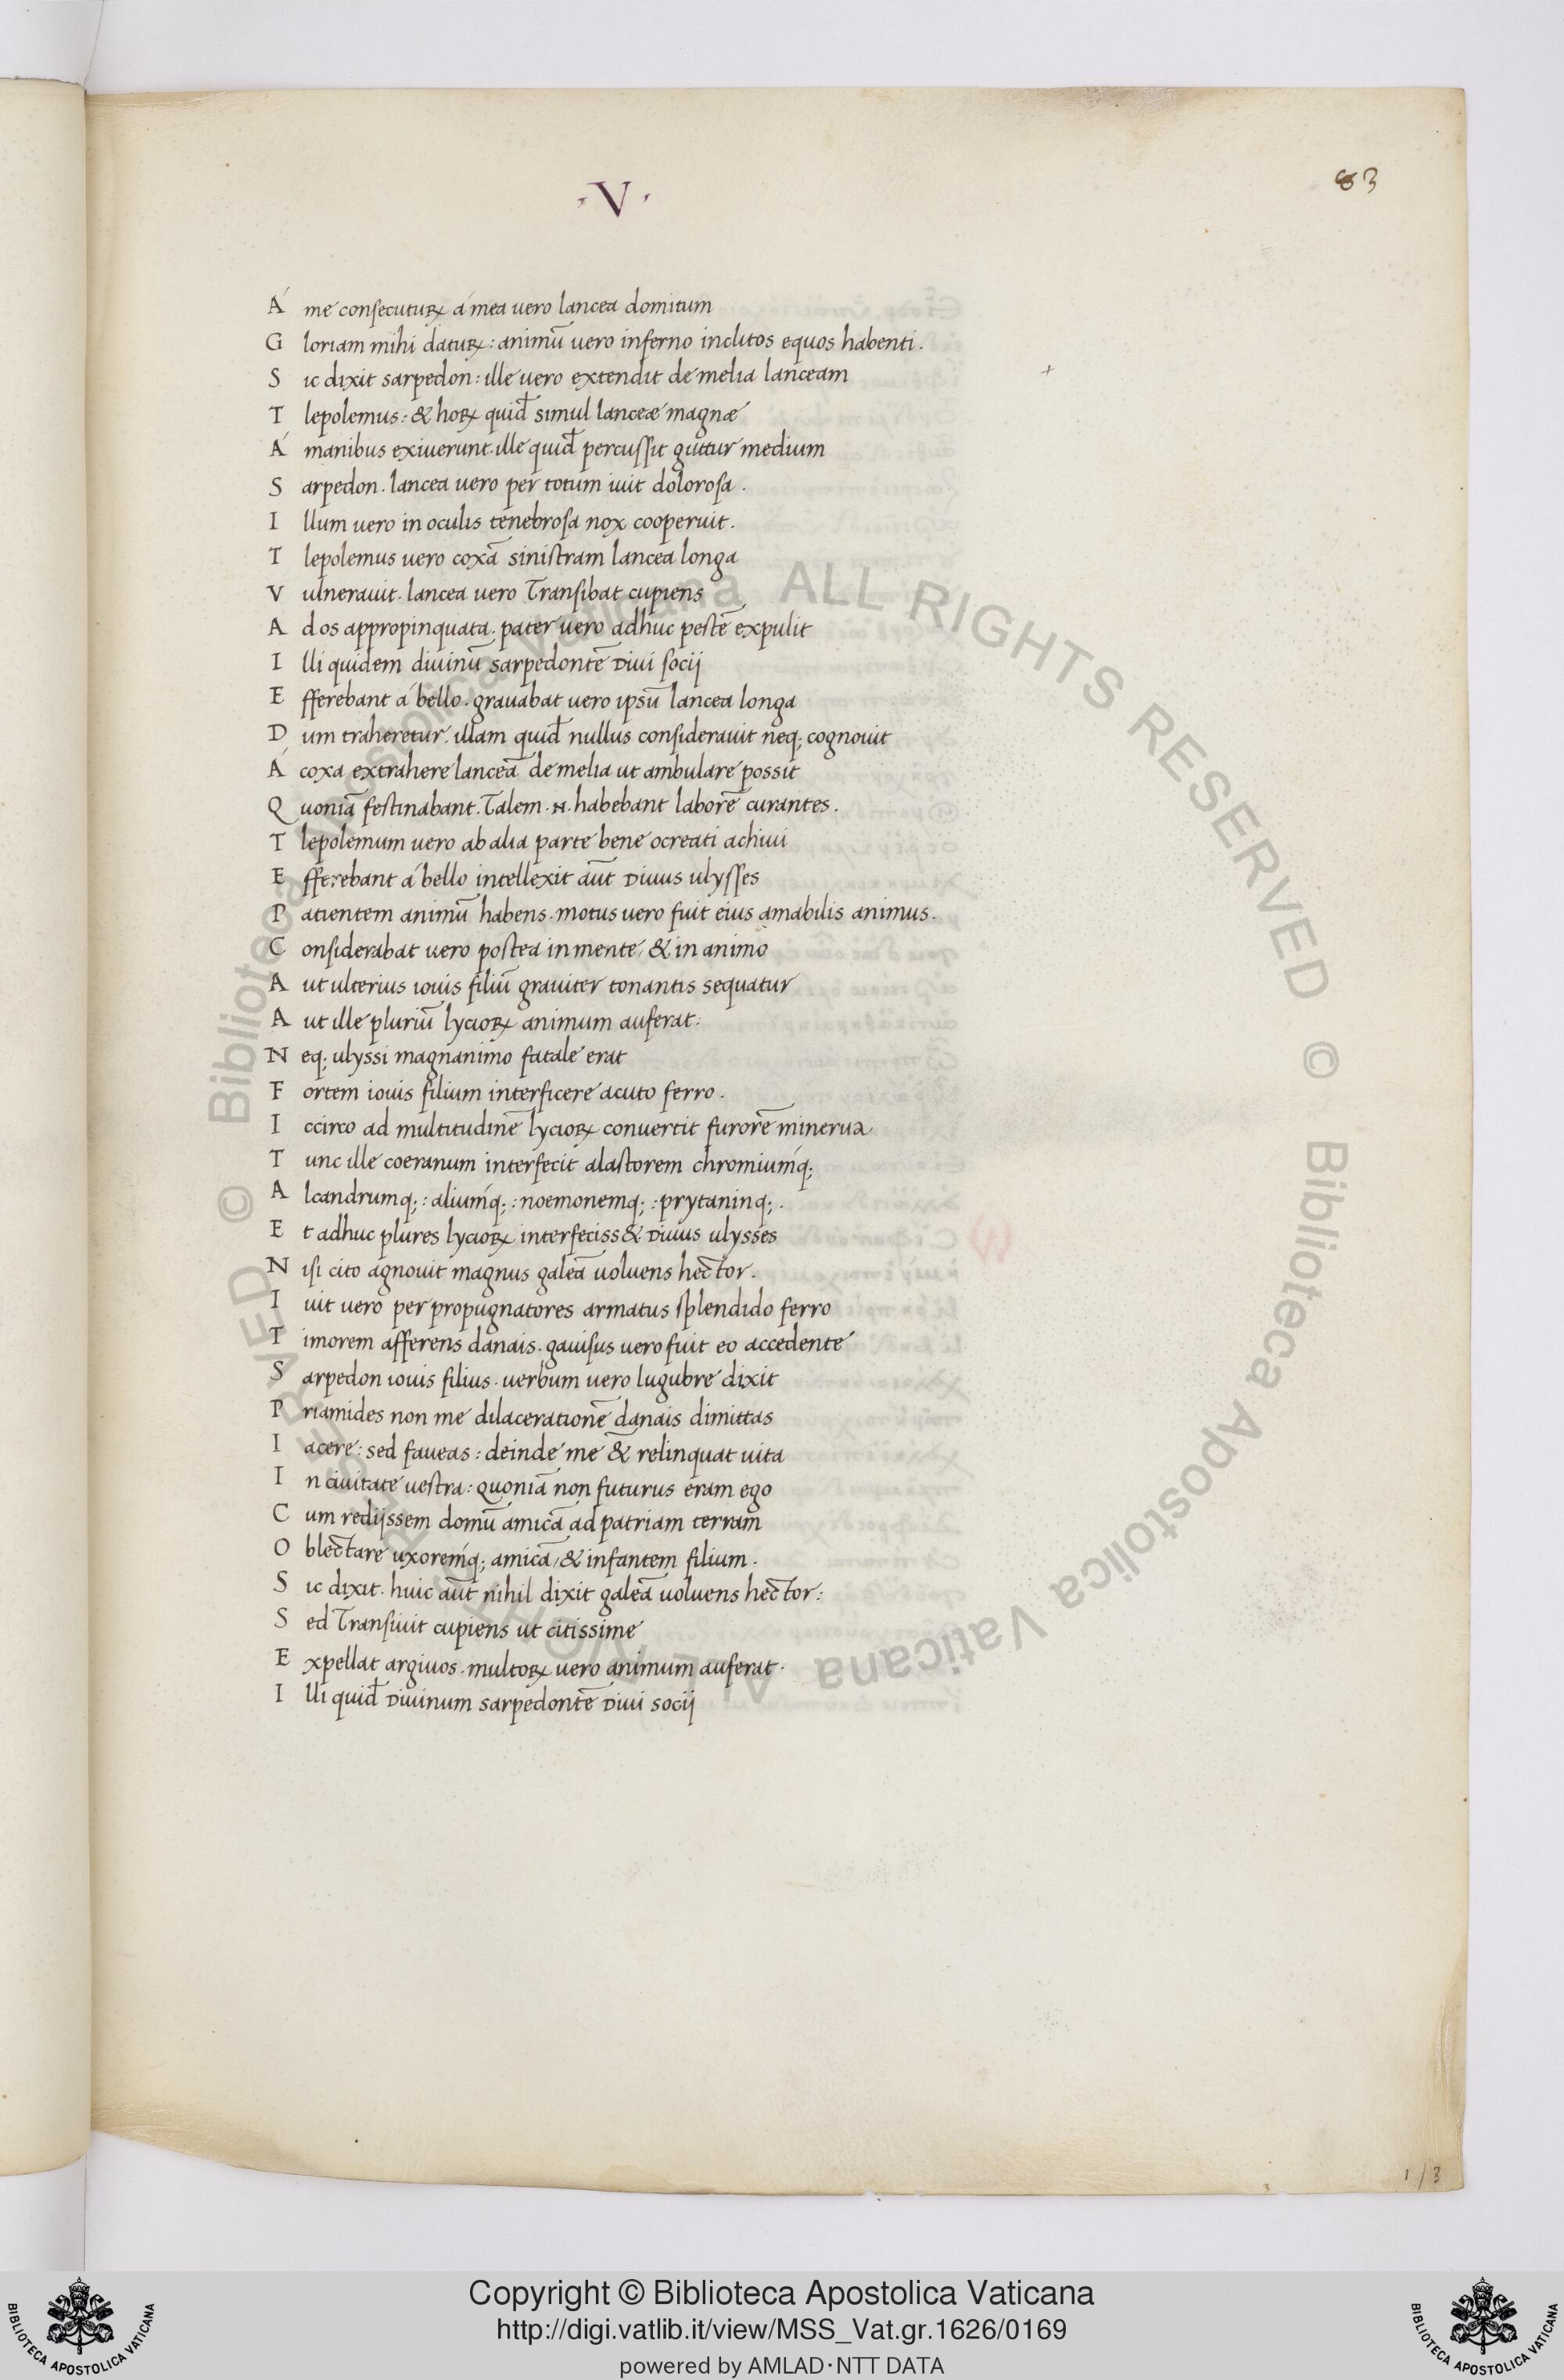 ·V·
83
Á me consecuturꝝ á mea uero lancea domitum
G loriam mihi daturꝝ: animū uero inferno inclitos equos habenti.
S ic dixit sarpedon: ille uero extendit de melia lanceam
T lepolemus: & hoꝝ quid̄ simul lanceæ magnæ
Á manibus exiuerunt. ille quid̄ percussit guttur medium
S arpedon. lancea uero per totum iuit dolorosa.
I llum uero in oculis tenebrosa nox cooperuit.
T lepolemus uero coxā sinistram lancea longa
V ulnerauit. lancea uero Transibat cupiens
A d os appropinquata. pater uero adhuc pestē expulit
I lli quidem diuinū sarpedontē Diui socij
E fferebant á bello. grauabat uero ipsū lancea longa
D um traheretur. illam quid̄ nullus considerauit neq; cognouit
Á coxa extrahere lanceā de melia ut ambulare possit
Q uoniā festinabant. Talem .N. habebant laborē curantes.
T lepolemum uero ab alia parte bene ocreati achiui
E fferebant á bello intellexit aūt Diuus ulysses
P atientem animū habens. motus uero fuit eius amabilis animus.
C onsiderabat uero postea in mente, & in animo
A ut ulterius iouis filiū grauiter tonantis sequatur
A ut ille pluriū lycioꝝ animum auferat:
N eq; ulyssi magnanimo fatale erat
F ortem iouis filium interficere acuto ferro.
I ccirco ad multitudinē lycioꝝ conuertit furorē minerua
T unc ille coeranum interfecit alastorem chromiumq́;
A lcandrumq; : aliumq́; : noemonemq; : prytaninq; .
E t adhuc plures lycioꝝ interfeciss& Diuus ulysses
N isi cito agnouit magnus galeā uoluens hector.
I uit uero per propugnatores armatus splendido ferro
T imorem afferens danais. gauisus uero fuit eo accedente
S arpedon iouis filius. uerbum uero lugubre dixit
P riamides non me dilacerationē danais dimittas
I acere: sed faueas: deinde me & relinquat uita
I n ciuitate uestra: quoniā non futurus eram ego
C um redijssem domū amicā ad patriam terram
O blectare uxoremq́; amicā, & infantem filium.
S ic dixit. huic aūt nihil dixit galeā uoluens hector:
S ed Transiuit cupiens ut citissime
E xpellat argiuos. multoꝝ uero animum auferat.
I lli quid̄ Diuinum sarpedontē Diui socij
1/3
© Biblioteca Apostolica Vaticana ALL RIGHTS RESERVED © Biblioteca Apostolica Vaticana ALL RIGHTS RESERVED
BIBLIOTECA APOSTOLICA VATICANA
Copyright © Biblioteca Apostolica Vaticana
http://digi.vatlib.it/view/MSS_Vat.gr.1626/0169
powered by AMLAD·NTT DATA
BIBLIOTECA APOSTOLICA VATICANA